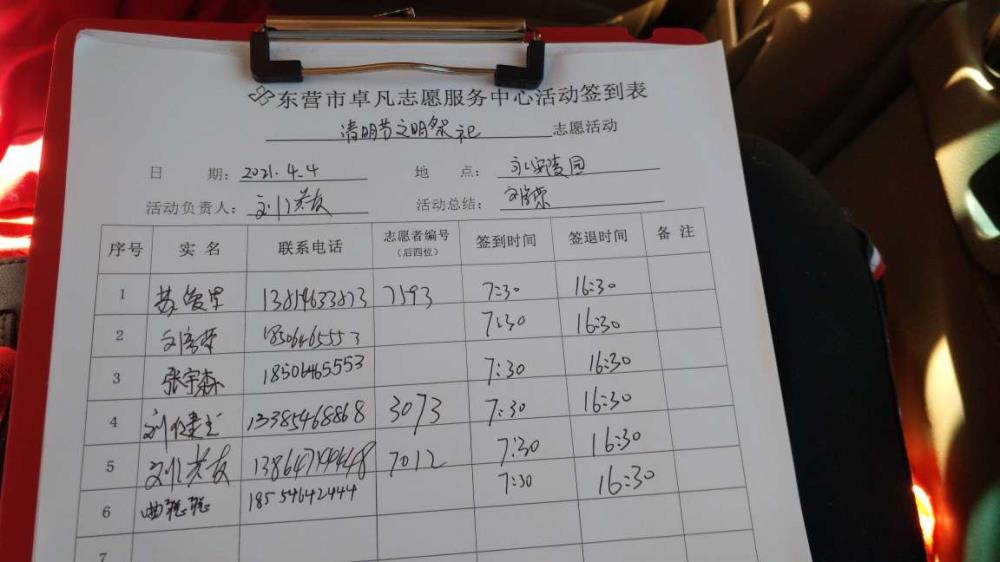 东营市卓凡志愿服务中心活动签到表
清明节文明祭祀 志愿活动
日 期: 2021.4.4 地 点: 永安陵园
活动负责人: 刘 友 活动总结:
序号 实 名 联系电话 志愿者编号 (后四位) 签到时间 签退时间 备 注
1 苏 13814633823 7593 7:30 16:30
2 18506465553 7:30 16:30
3 张宇森 18506465553 7:30 16:30
4 刘 13385468868 3073 7:30 16:30
5 刘 友 7012 7:30 16:30
6 曲 18554642444 7:30 16:30
7